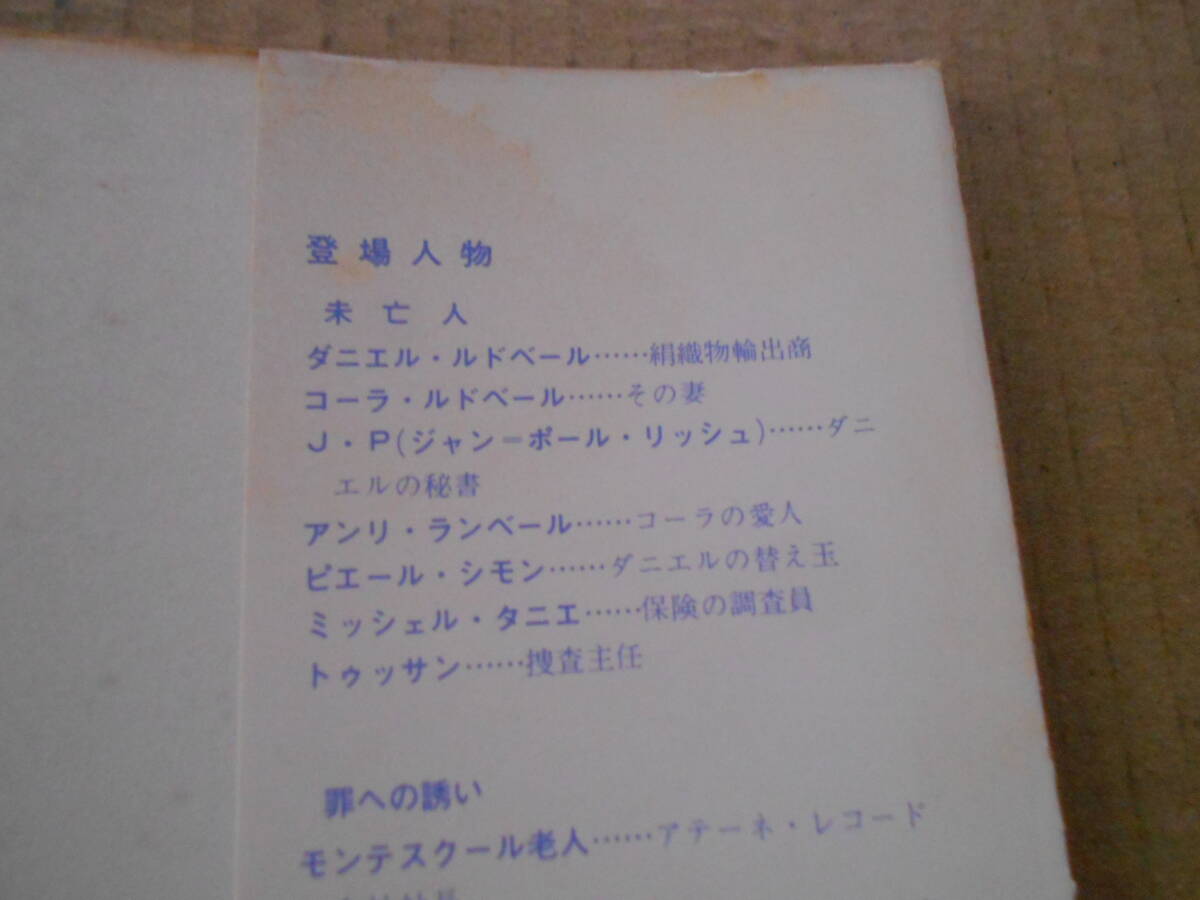 登場人物
未亡人
ダニエル・ルドベール……絹織物輸出商
コーラ・ルドベール……その妻
J・P(ジャン＝ポール・リッシュ)……ダニ
エルの秘書
アンリ・ランベール……コーラの愛人
ピエール・シモン……ダニエルの替え玉
ミッシェル・タニエ……保険の調査員
トゥッサン……捜査主任
罪への誘い
モンテスクール老人……アテーネ・レコード